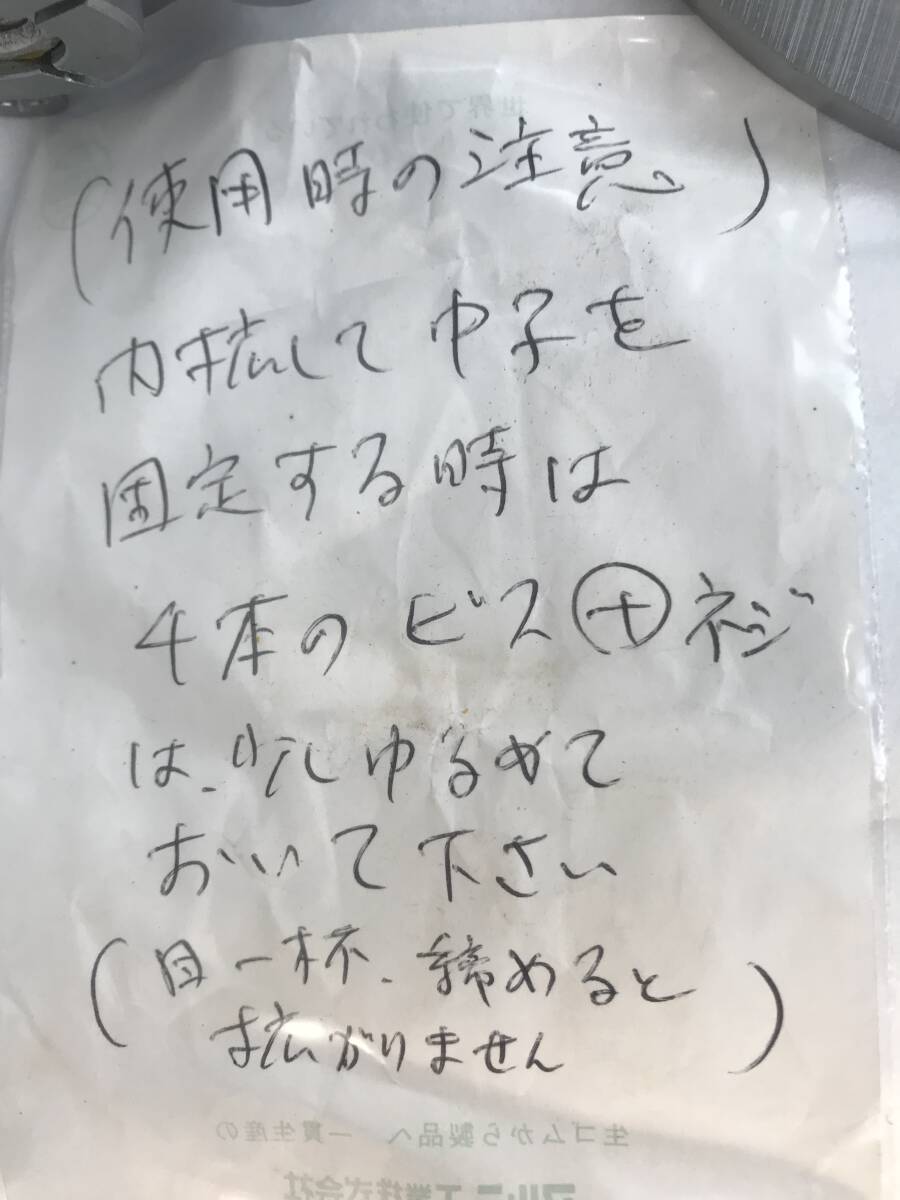 世界で使われている
(使用時の注意)
内拡して中子を
固定する時は
4本のビス⊕ネジ
は、少しゆるめて
おいて下さい
(目一杯、締めると
拡がりません)
生ゴムから製品へ 一貫生産の
マルニ工業株式会社